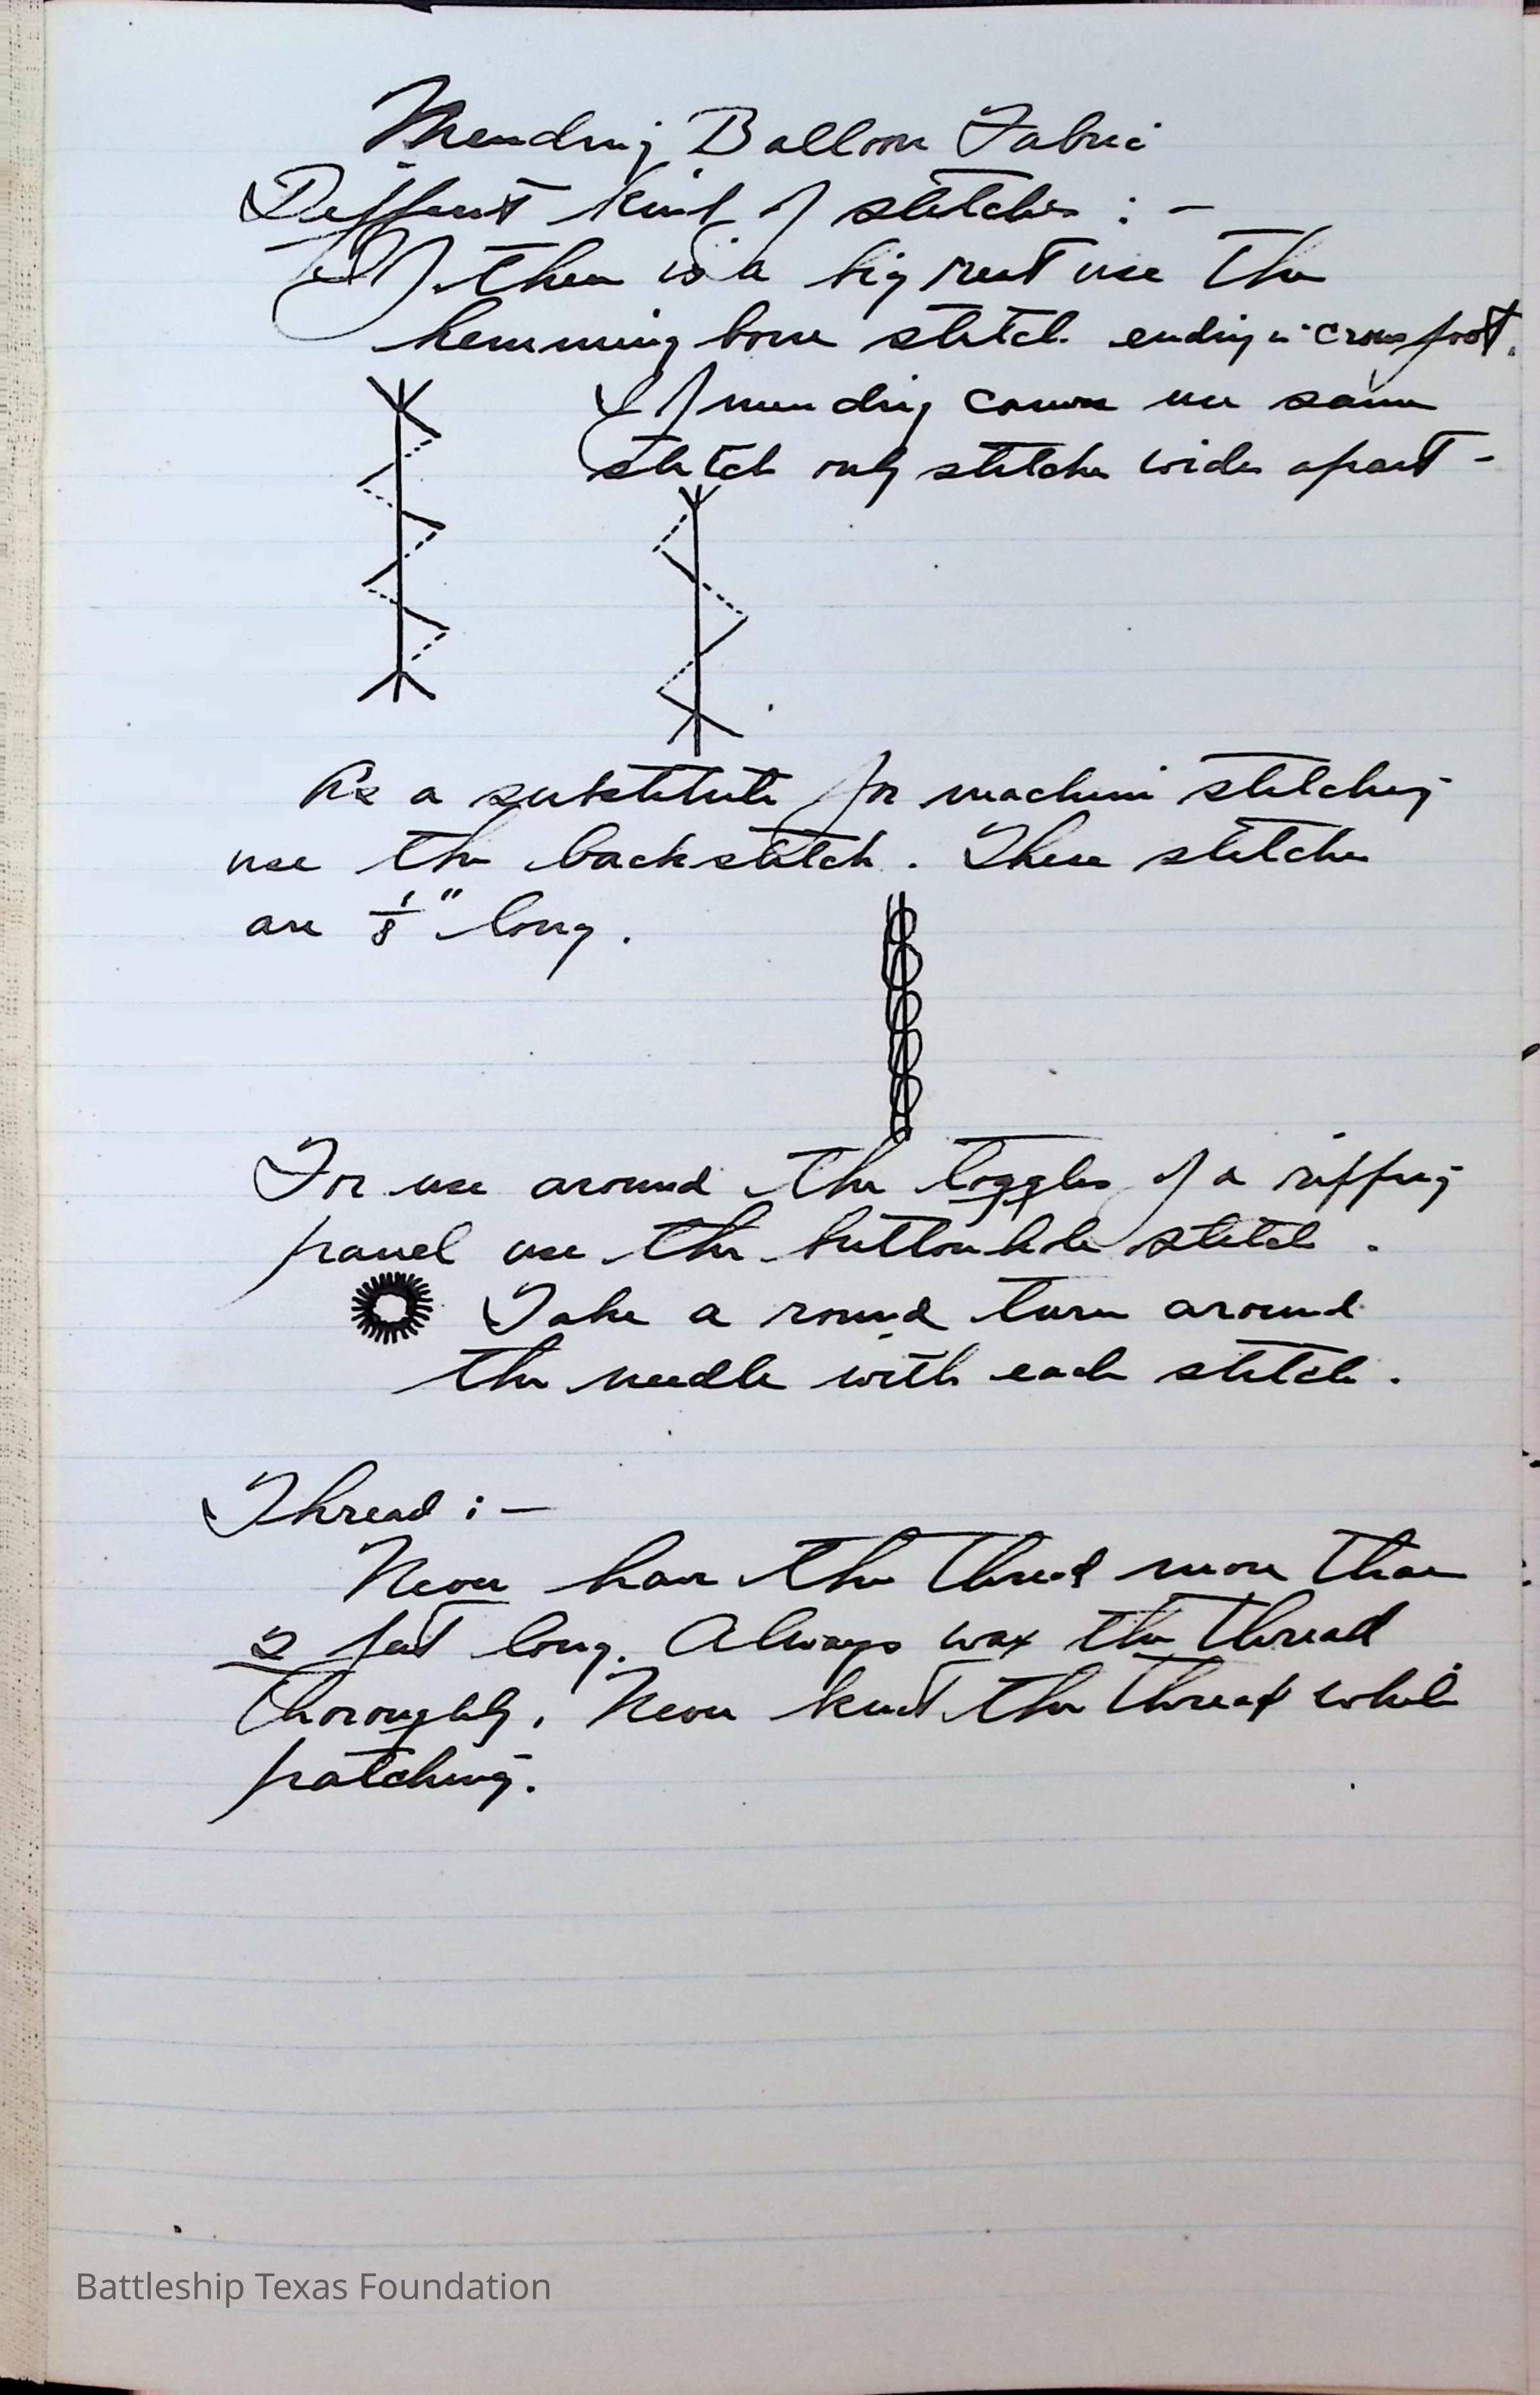 Mending Balloon Fabric
Different kind of stitches : -
If there is a big rent use the
hemming bone stitch ending in crows foot.
If mending canvas use same
stitch only stitches wider apart -
As a substitute for machine stitching
use the backstitch . These stitches
are 1/8" long .
For use around the toggles of a ripping
panel use the buttonhole stitch .
Take a round turn around
the needle with each stitch .
Thread : -
Never have the thread more than
2 feet long. Always wax the thread
thoroughly. Never knot the thread while
patching.
Battleship Texas Foundation